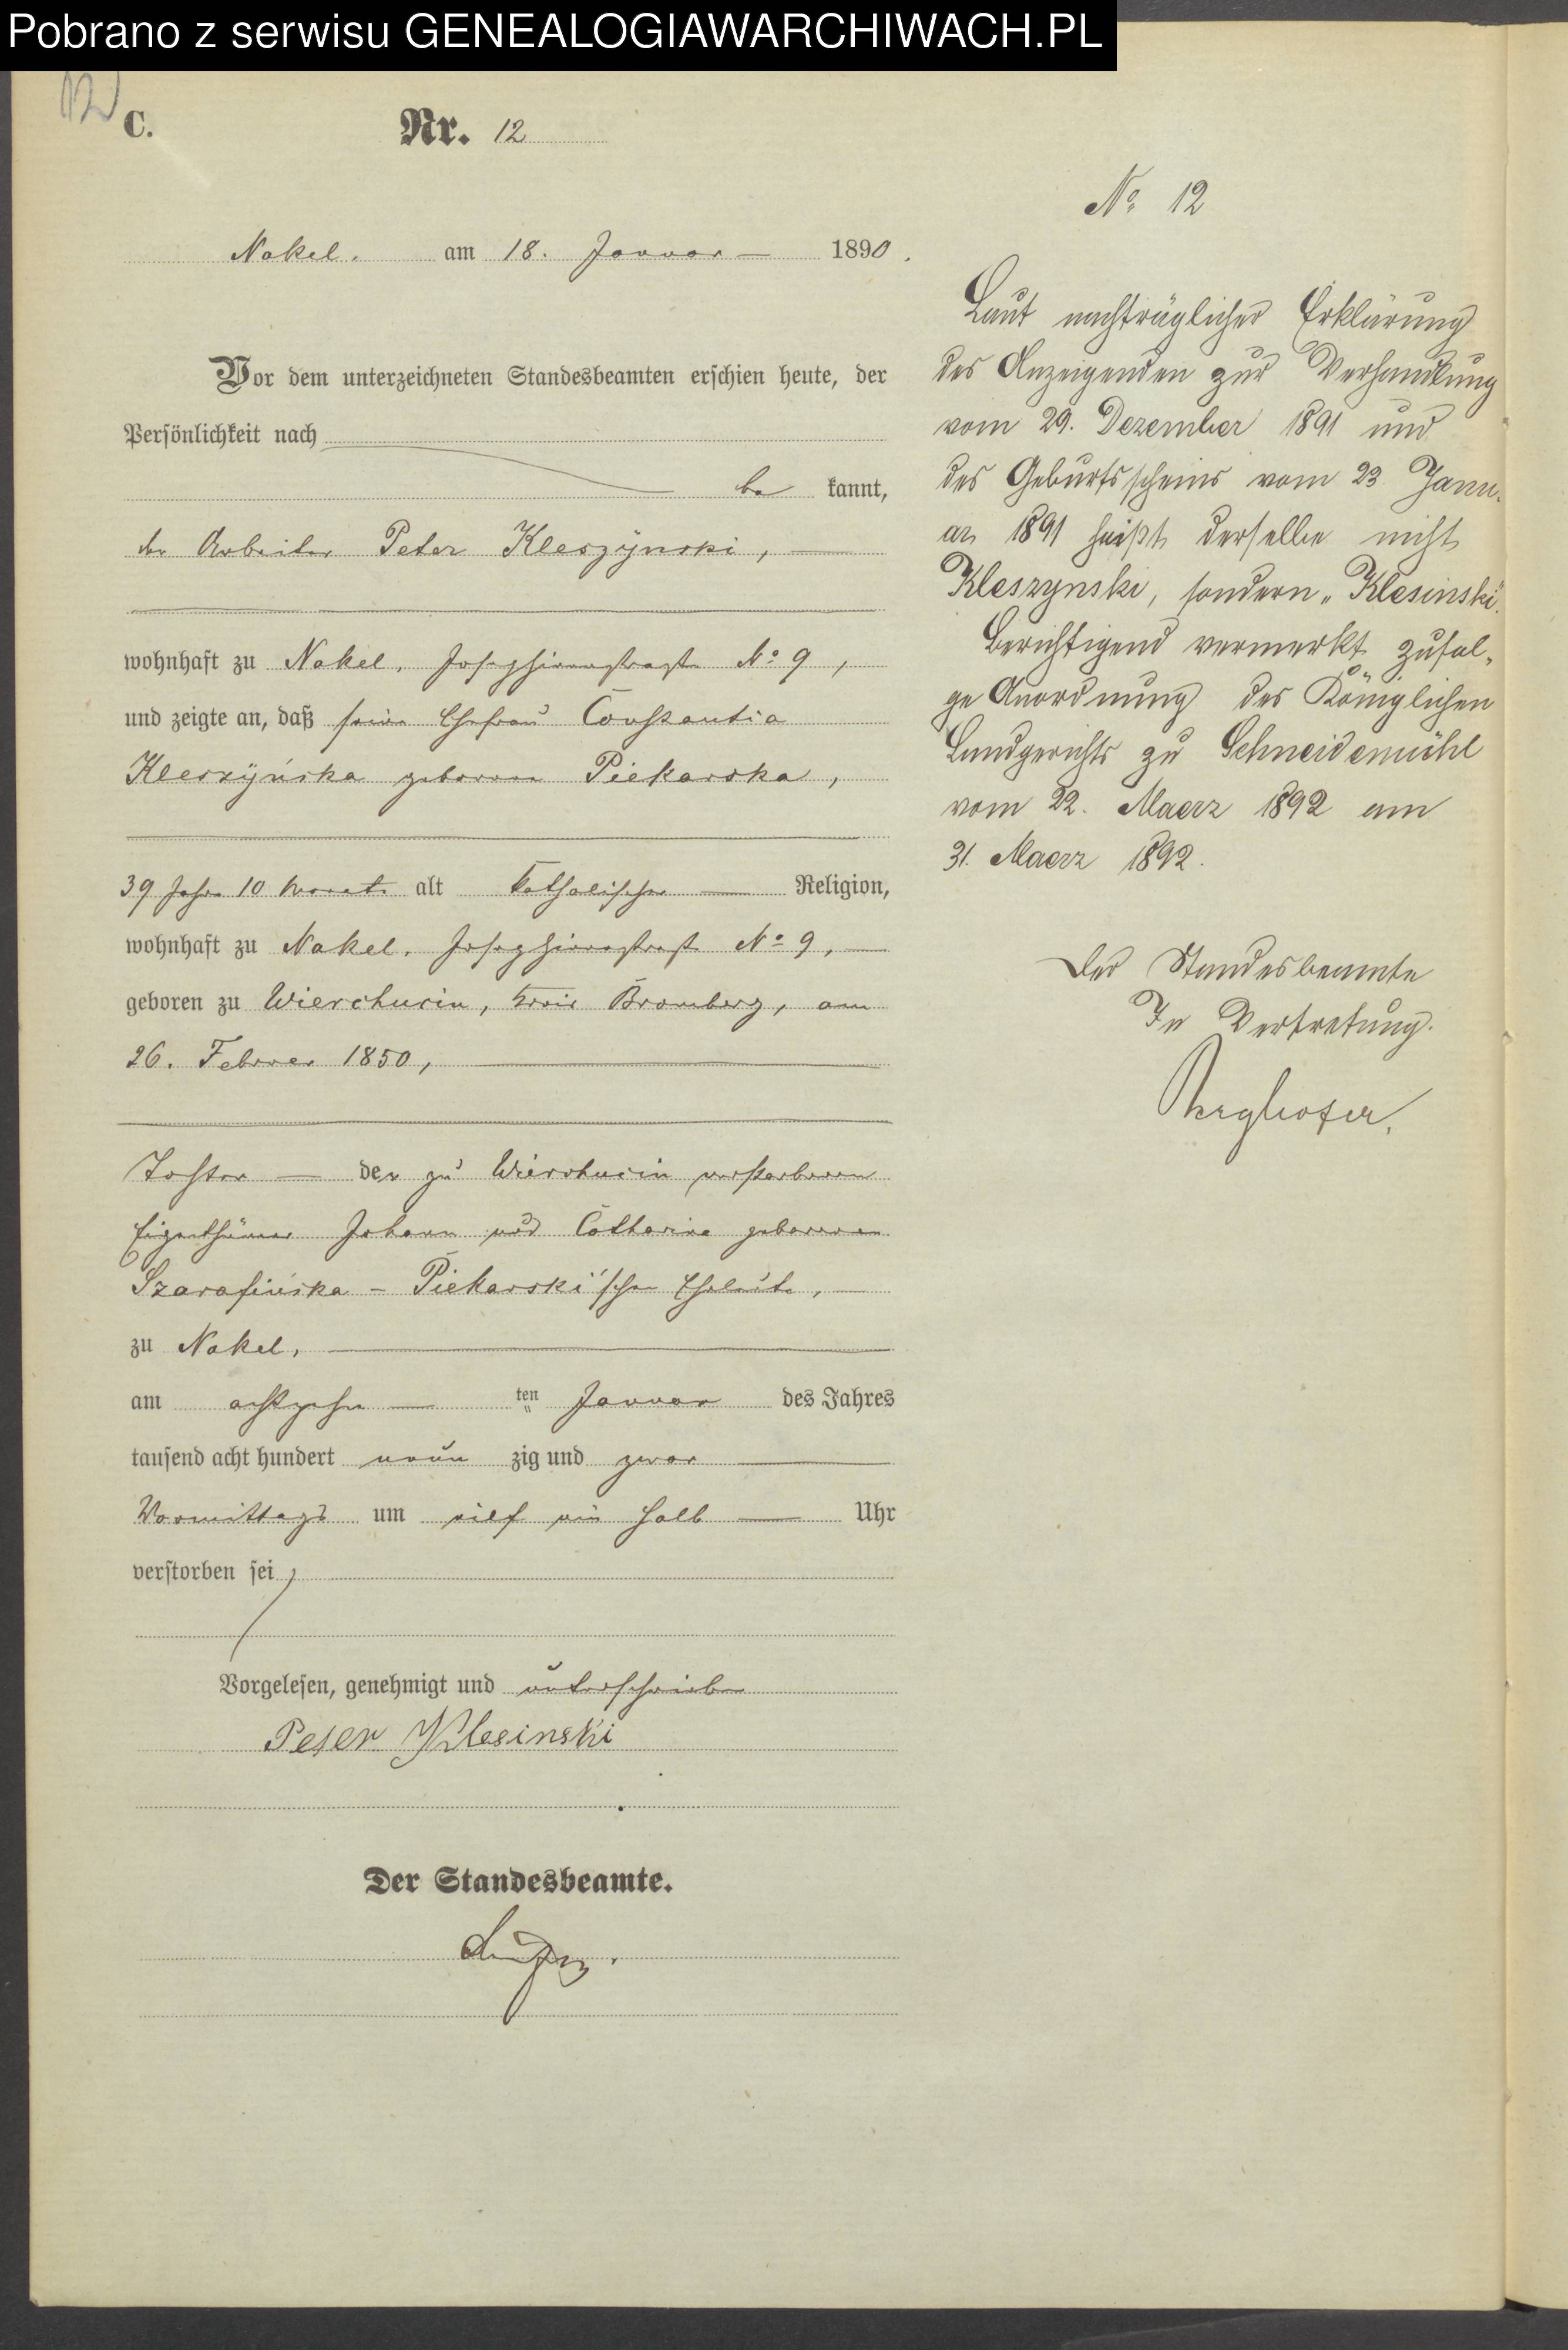 Pobrano z serwisu GENEALOGIAWARCHIWACH.PL
12
C.
Nr. 12
Nakel, am 18. Januar — 1890.
Vor dem unterzeichneten Standesbeamten erschien heute, der
Persönlichkeit nach
be kannt,
der Arbeiter Peter Kleszÿnski, —
wohnhaft zu Nakel, Josephinenstraße No 9,
und zeigte an, daß seine Ehefrau Constantia
Kleszÿńska geborene Piekarska,
39 Jahre 10 Monate alt katholischer — Religion,
wohnhaft zu Nakel, Josephinenstraße No 9, —
geboren zu Wierchucin, Kreis Bromberg, am
26. Februar 1850,
Tochter — der zu Wierchucin verstorbenen
Eigenthümer Johann und Catharina geborenen
Szarafińska - Piekarski'schen Eheleute, —
zu Nakel,
am achtzehn — ten Januar des Jahres
tausend acht hundert neun zig und zwar
Vormittags um elf ein halb — Uhr
verstorben sei,
Vorgelesen, genehmigt und unterschrieben
Peter Klesinski
Der Standesbeamte.
No 12
Laut nachträglicher Erklärung
des Anzeigenden zur Verhandlung
vom 29. Dezember 1891 und
des Geburtsscheins vom 23. Janu-
ar 1891 heißt derselbe nicht
Kleszynski, sondern „Klesinski".
Berichtigend vermerkt zufol-
ge Anordnung des Königlichen
Landgerichts zu Schneidemühl
vom 22. Maerz 1892 am
31. Maerz 1892.
Der Standesbeamte
In Vertretung.
Berghofer.